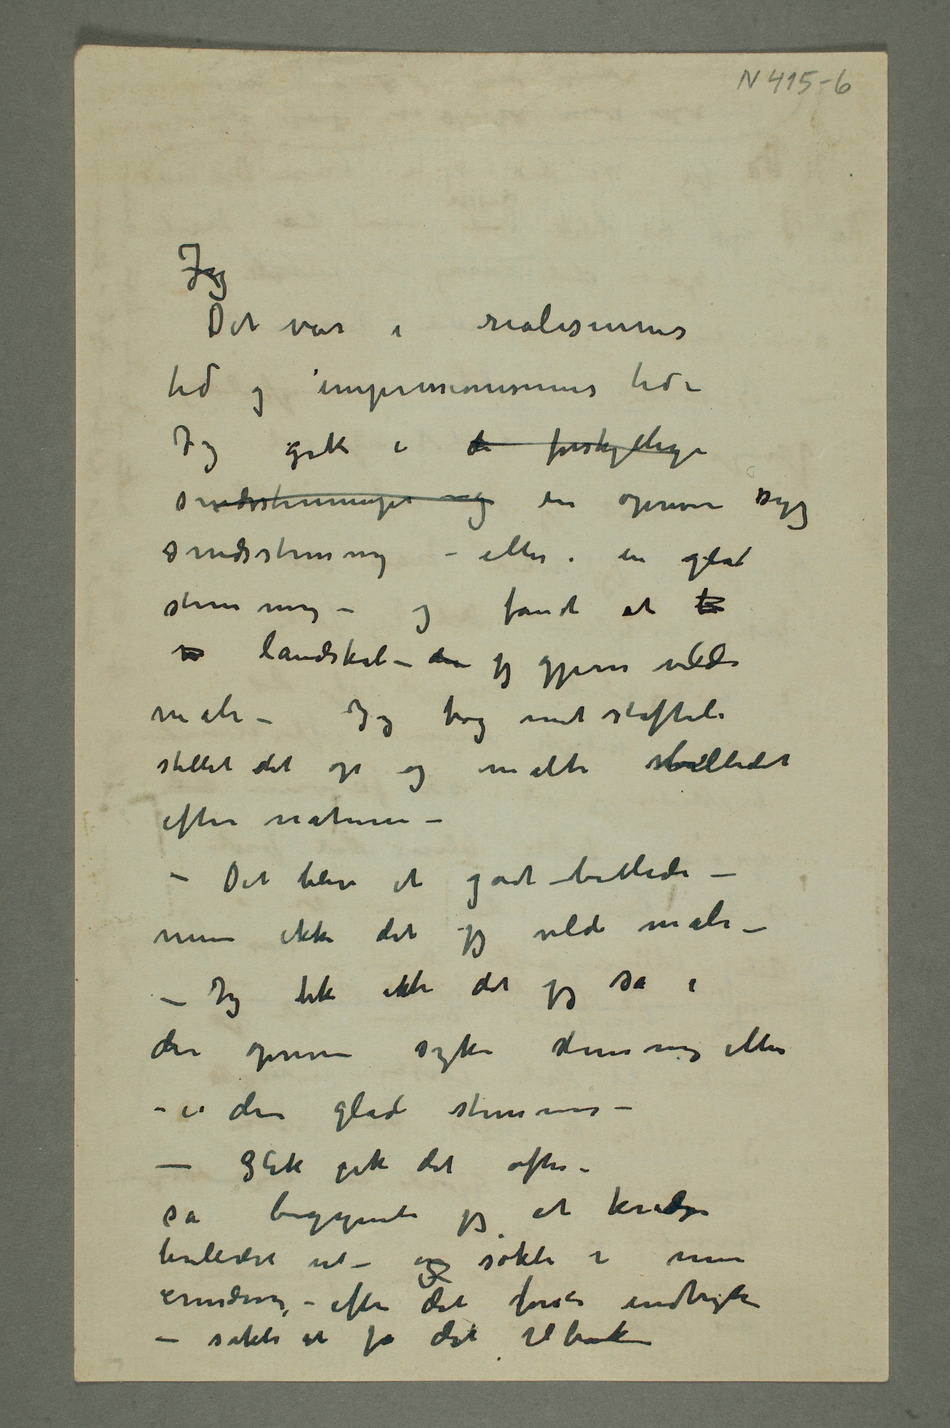 N 415-6
Jeg
Det var i realismens
tid og impressionismens tid –
Jeg gik i de forskjellige
sindsstemninger og en oprevet syg
sindsstemning – eller i en glad
stemning – og fandt et
landskab – jeg gjerne vilde
male – Jeg tog mit staffeli
stillet det op og malte billedet
efter naturen –
– Det blev et godt billede –
men ikke det jeg vilde male –
– Jeg fik ikke det jeg så i
den oprevne syke stemning eller
– i den glade stemning –
– Slik gik det ofte –
så begynte jeg at kradse
billedet ut – og søkte i min
erindring – efter det første indtryk
– søkte at få det tilbake